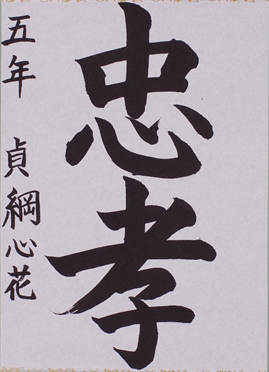 忠孝
五年 貞綱心花